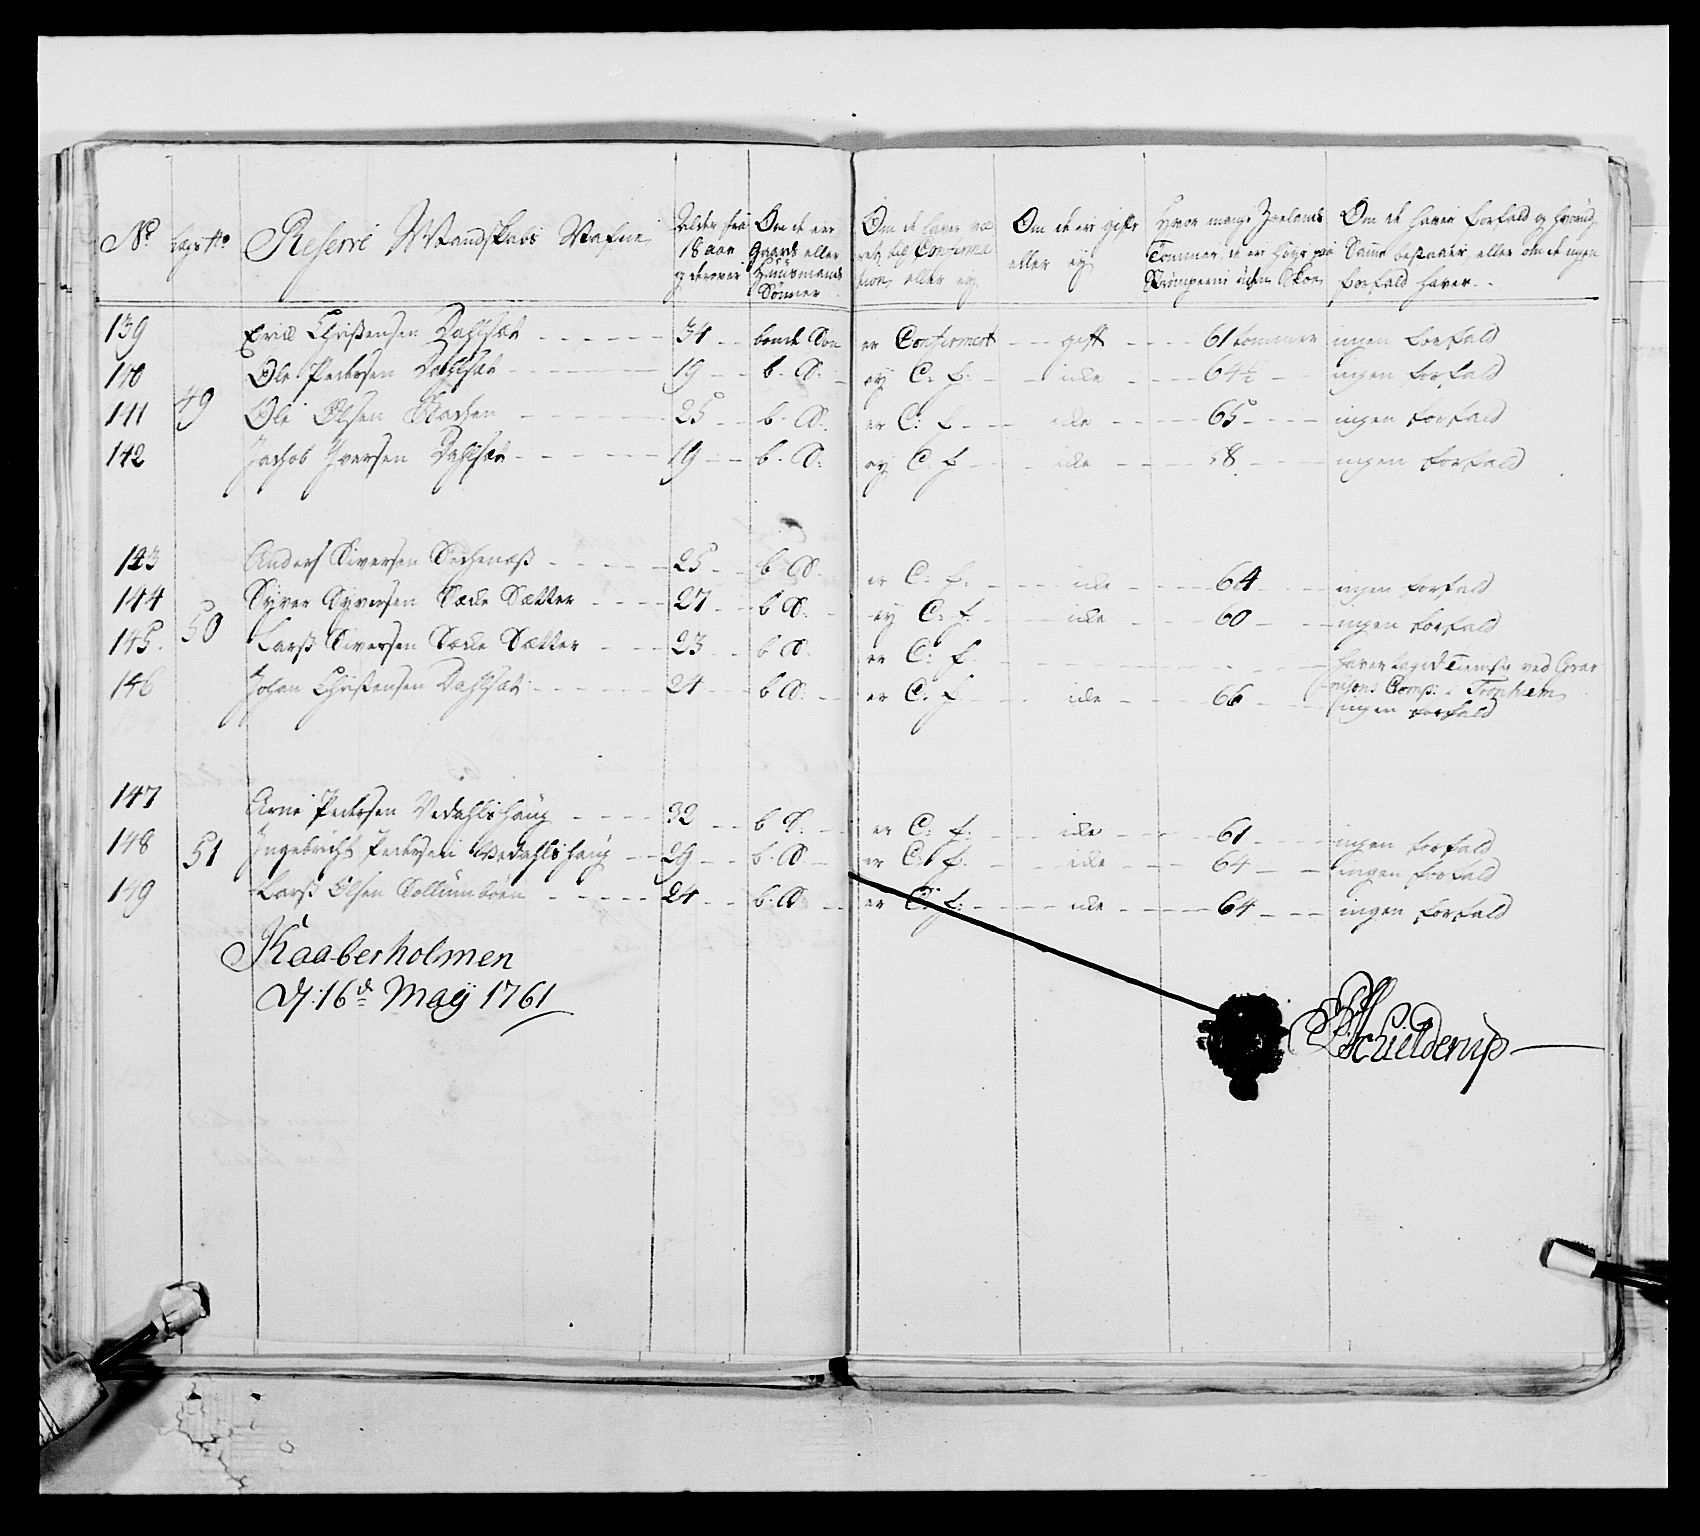 No Lægs No Reserve Mandskabs Nafne Alder fra 18 aar og derover Om de ere Gaards eller Huusmands Sønner Om de haver været til Confirmation, eller ey Om de er gifte eller ey Hvor mange Zoelands Tommer de er høye paa Strømperne uden Skoe Om de haver forfald og hvorudj Samme bestaaer, eller om de ingen forfald haver.
139 Erich Christensen Dahlsæt 34 bonde Søn er Confirmert gift 61 tommer ingen forfald
140 Ole Pedersen Dahlsæt 19 b. S. ey C. f. icke 64½ ingen forfald
49
141 Ole Olsen 25 b. S. er C: f icke 65 ingen forfald
142 Jachob Iversen Dahlsæt 19 b. S: ey C. f icke 58 ingen forfald
143 Anders Siversen 25 b. S. er C: f. icke 64 ingen forfald
144 Syver Syversen Sætter 27 b S. ey C. f. icke 60 ingen forfald
50
145. Larss Siversen Sætter 23 b S. er C: f. haver taget Tienste ved Guarnisons Comp: i Tronhiem
146 Johan Christensen Dahlsæt 24 b S: er C. f icke 66 ingen forfald
147 Arne Pedersen Vedahlshaug 32 b S. er C: f. icke 61 ingen forfald
148 51 Ingebricht Pedersen Vedahlshaug 29 b. S. er C: f. icke 64 ingen forfald
149 Larss Olsen 24 b. S. er C: f: icke 64 ingen forfald
Kaaberholmen
d: 16d Maij 1761
Schielderup